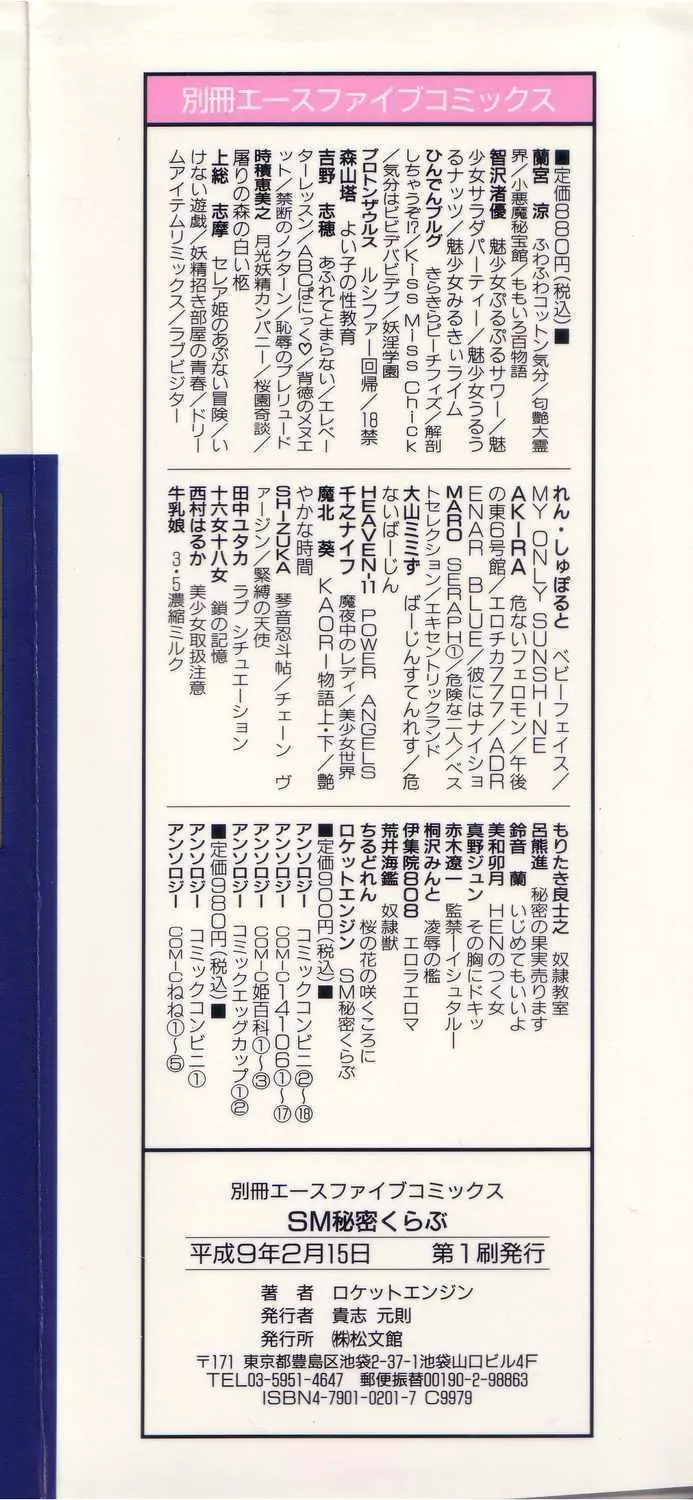 別冊エースファイブコミックス
■定価880円(税込)■
蘭宮 涼 ふわふわコットン気分/匂艶大霊
界/小悪魔秘宝館/ももいろ百物語
智沢渚優 魅少女ぷるぷるサワー/魅
少女サラダパーティー/魅少女うるう
るナッツ/魅少女みるきぃライム
ひんでんブルグ きらきらピーチフィズ/解剖
しちゃうぞ!?/Kiss Miss Chick
/気分はビビデバビデブ/妖淫学園
プロトンザウルス ルシファー回帰/18禁
森山塔 よい子の性教育
吉野 志穂 あふれてとまらない/エレベー
ターレッスン/ABCぱにっく♡/背徳のメヌエ
ット/禁断のノクターン/恥辱のプレリュード
時積恵美之 月光妖精カンパニー/桜園奇談/
屠りの森の白い柩
上総 志摩 セレア姫のあぶない冒険/い
けない遊戯/妖精招き部屋の青春/ドリー
ムアイテムリミックス/ラブビジター
れん・しゅぽると ベビーフェイス/
MY ONLY SUNSHINE
AKIRA 危ないフェロモン/午後
の東6号館/エロチカ777/ADR
ENAR BLUE/彼にはナイショ
MARO SERAPH①/危険な二人/ベス
トセレクション/エキセントリックランド
大山ミミず ばーじんすてんれす/危
ないばーじん
HEAVEN-11 POWER ANGELS
千之ナイフ 魔夜中のレディ/美少女世界
魔北 葵 KAORI物語上・下/艶
やかな時間
SHIZUKA 琴音忍斗帖/チェーン ヴ
ァージン/緊縛の天使
田中ユタカ ラブ シチュエーション
十六女十八女 鎖の記憶
西村はるか 美少女取扱注意
牛乳娘 3・5濃縮ミルク
もりたき良士之 奴隷教室
呂熊進 秘密の果実売ります
鈴音 蘭 いじめてもいいよ
美和卯月 HENのつく女
真野ジュン その胸にドキッ
赤木遼一 監禁―イシュタルー
桐沢みんと 凌辱の檻
伊集院808 エロラエロマ
荒井海鑑 奴隷獣
ちるどれん 桜の花の咲くころに
ロケットエンジン SM秘密くらぶ
■定価900円(税込)■
アンソロジー コミックコンビニ②〜⑱
アンソロジー COMIC14106①〜⑰
アンソロジー COMIC姫百科①〜③
アンソロジー コミックエッグカップ①②
■定価980円(税込)■
アンソロジー コミックコンビニ①
アンソロジー COMICねね①〜⑤
別冊エースファイブコミックス
SM秘密くらぶ
平成9年2月15日 第1刷発行
著 者 ロケットエンジン
発行者 貴志 元則
発行所 ㈱松文館
〒171 東京都豊島区池袋2-37-1池袋山口ビル4F
TEL03-5951-4647 郵便振替00190-2-98863
ISBN4-7901-0201-7 C9979